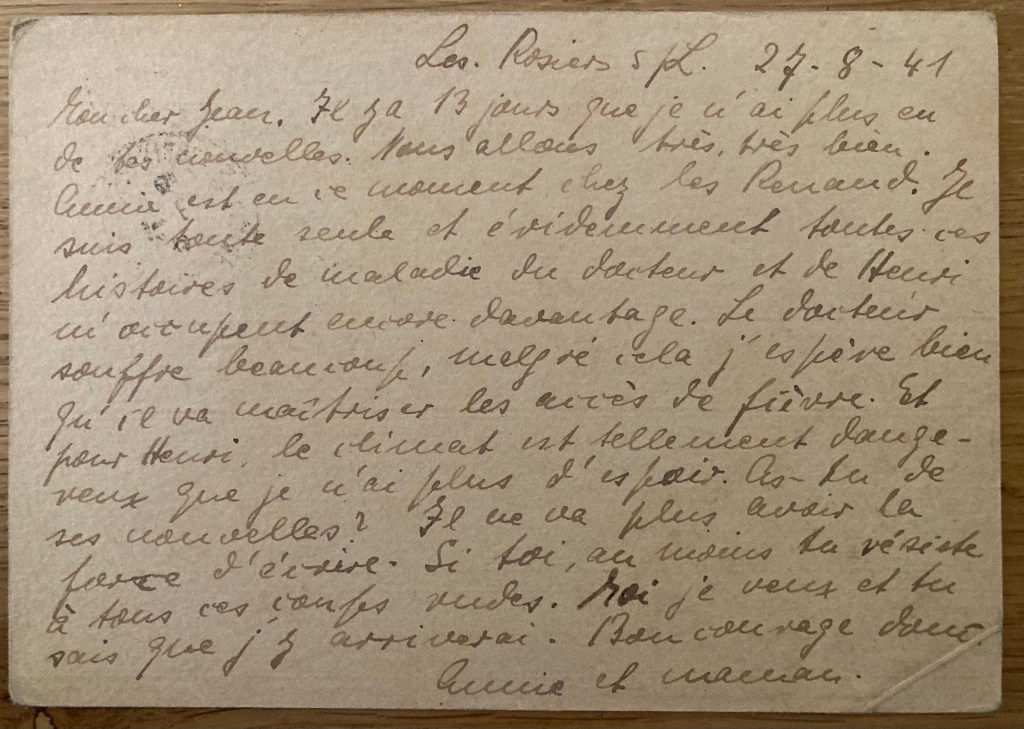 Les. Rosiers s/L. 27-8-41
Mon cher Jean. Il y a 13 jours que je n'ai plus eu
de tes nouvelles. Nous allons très, très bien.
Annie est en ce moment chez les Renaud. Je
suis toute seule et évidemment toutes ces
histoires de maladie du docteur et de Henri
m'occupent encore davantage. Le docteur
souffre beaucoup, malgré cela j'espère bien
qu'il va maîtriser les accès de fièvre. Et
pour Henri, le climat est tellement dange-
reux que je n'ai plus d'espoir. As-tu de
ses nouvelles? Il ne va plus avoir la
force d'écrire. Si toi, au moins tu résiste
à tous ces coups rudes. Moi je veux et tu
sais que j'y arriverai. Bon courage donc
Annie et maman.